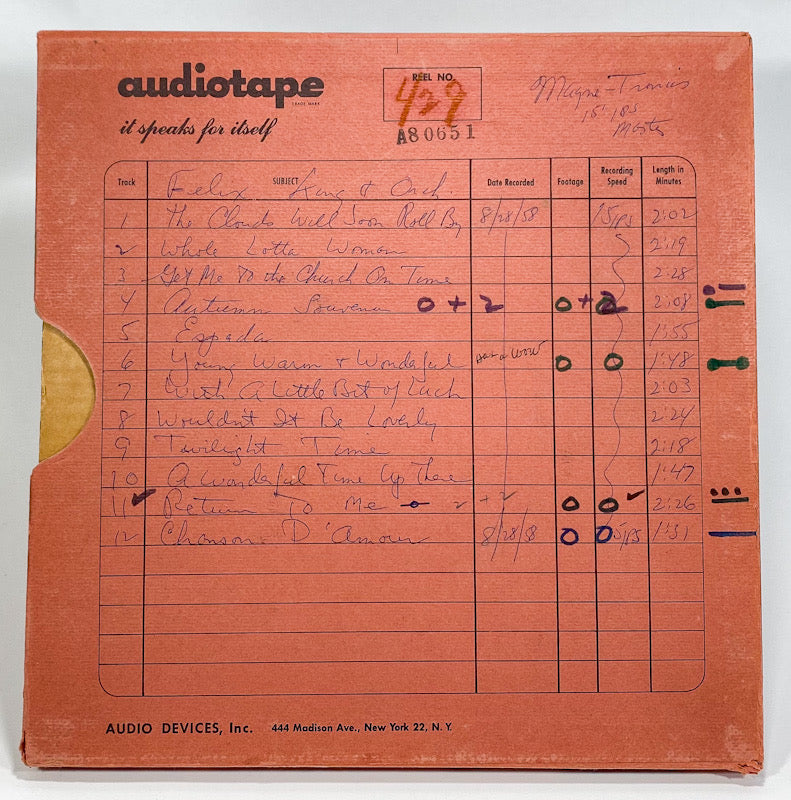 audiotape
TRADE MARK
it speaks for itself
REEL NO.
429
A80651
Magne-Tronics
15" IPS
Master
Track SUBJECT Date Recorded Footage Recording Speed Length in Minutes
Felix King + Orch.
1 The Clouds Will Soon Roll By 8/28/58 15 IPS 2:02
2 Whole Lotta Woman 2:19
3 Get Me To the Church On Time 2:28
4 Autumn Souvenir 0 + 2 0 + 2 2:08
5 Espada 1:55
6 Young Warm + Wonderful has a wow 0 0 1:48
7 With A Little Bit of Luck 2:03
8 Wouldn't It Be Loverly 2:24
9 Twilight Time 2:18
10 A Wonderful Time Up There 1:47
11 ✓ Return To Me 0 2 + 2 0 0 ✓ 2:26
12 Chanson D'Amour 8/28/58 0 0 15 IPS 1:31
AUDIO DEVICES, Inc. 444 Madison Ave., New York 22, N. Y.